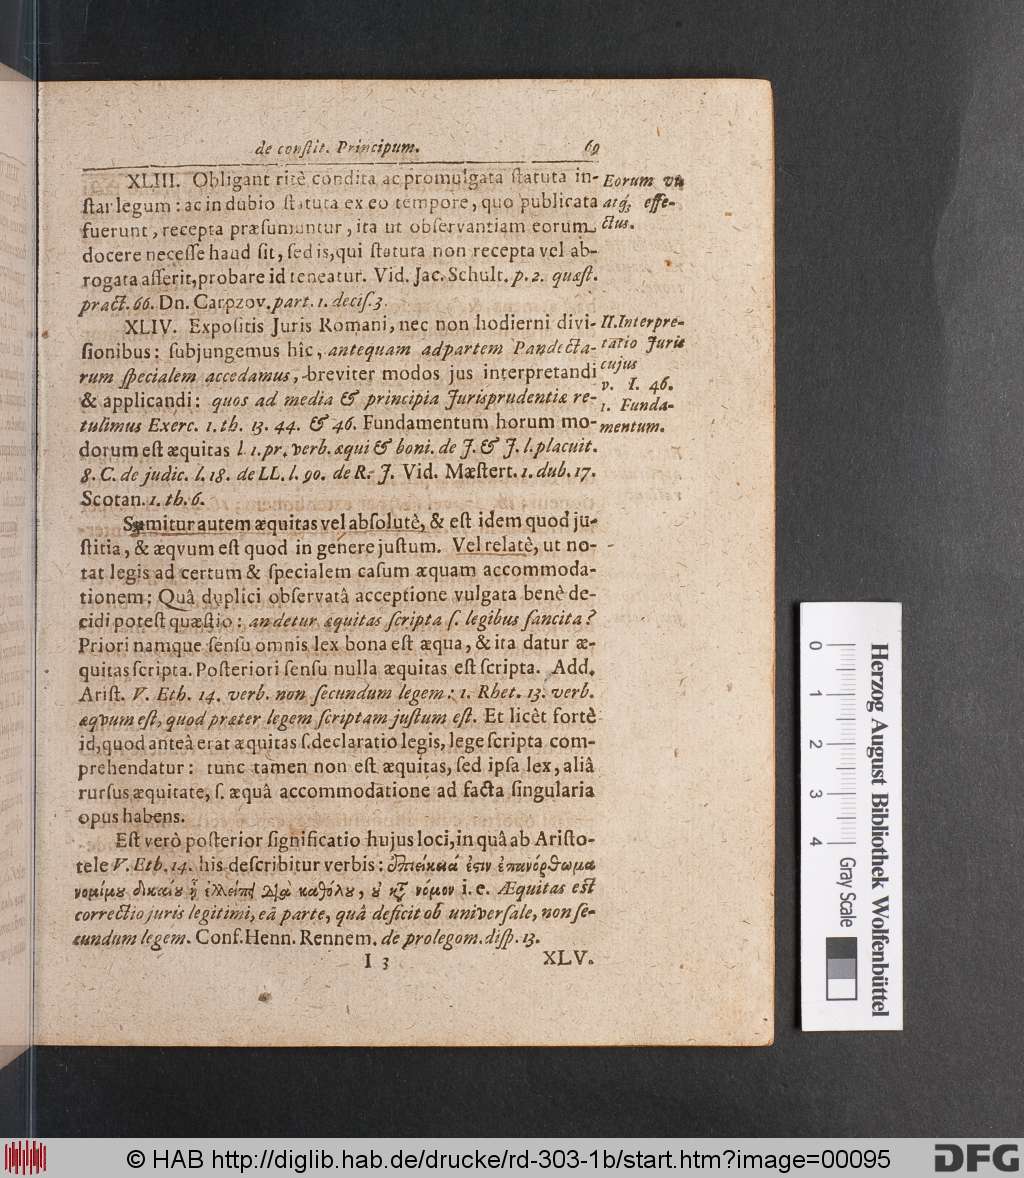 de constit. Principum. 69
XLIII. Obligant ritè condita ac promulgata statuta in-
star legum : ac in dubio statuta ex eo tempore, quo publicata
fuerunt, recepta præsumuntur, ita ut observantiam eorum
docere necesse haud sit, sed is, qui statuta non recepta vel ab-
rogata asserit, probare id teneatur. Vid. Jac. Schult. p. 2. quæst.
pract. 66. Dn. Carpzov. part. 1. decis. 3.
Eorum vis
atq; effe-
ctus.
XLIV. Expositis Juris Romani, nec non hodierni divi-
sionibus: subjungemus hîc, antequam ad partem Pandecta-
rum specialem accedamus, breviter modos jus interpretandi
& applicandi: quos ad media & principia Jurisprudentiæ re-
tulimus Exerc. 1. th. 13. 44. & 46. Fundamentum horum mo-
dorum est æquitas l. 1. pr. verb. æqui & boni. de J. & J. l. placuit.
8. C. de judic. l. 18. de LL. l. 90. de R. J. Vid. Mæstert. 1. dub. 17.
Scotan. 1. th. 6.
II. Interpre-
tatio Juris
cujus
v. I. 46.
1. Funda-
mentum.
Sumitur autem æquitas vel absolutè, & est idem quod ju-
stitia, & æqvum est quod in genere justum. Vel relatè, ut no-
tat legis ad certum & specialem casum æquam accommoda-
tionem: Quâ duplici observatâ acceptione vulgata benè de-
cidi potest quæstio: an detur æquitas scripta s. legibus sancita?
Priori namque sensu omnis lex bona est æqua, & ita datur æ-
quitas scripta. Posteriori sensu nulla æquitas est scripta. Add.
Arist. V. Eth. 14. verb. non secundum legem: 1. Rhet. 13. verb.
æqvum est, quod præter legem scriptam justum est. Et licèt fortè
id, quod anteà erat æquitas s. declaratio legis, lege scripta com-
prehendatur: tunc tamen non est æquitas, sed ipsa lex, aliâ
rursus æquitate, s. æquâ accommodatione ad facta singularia
opus habens.
Est verò posterior significatio hujus loci, in quâ ab Aristo-
tele V. Eth. 14. his describitur verbis: ἐπιείκειά ἐστιν ἐπανόρθωμα
νομίμου δικαίου ᾗ ἐλλείπῃ διὰ καθόλου, οὐ κατὰ νόμον i. e. Æquitas est
correctio juris legitimi, eâ parte, quâ deficit ob universale, non se-
cundum legem. Conf. Henn. Rennem. de prolegom. disp. 13.
I 3 XLV.
0 1 2 3 4
Gray Scale
Herzog August Bibliothek Wolfenbüttel
© HAB http://diglib.hab.de/drucke/rd-303-1b/start.htm?image=00095
DFG